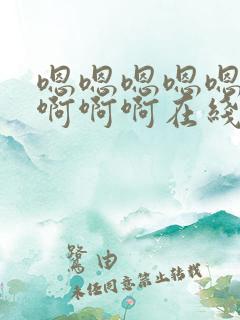 嗯嗯嗯嗯嗯
啊啊啊在线
鹭由
未经同意禁止转载